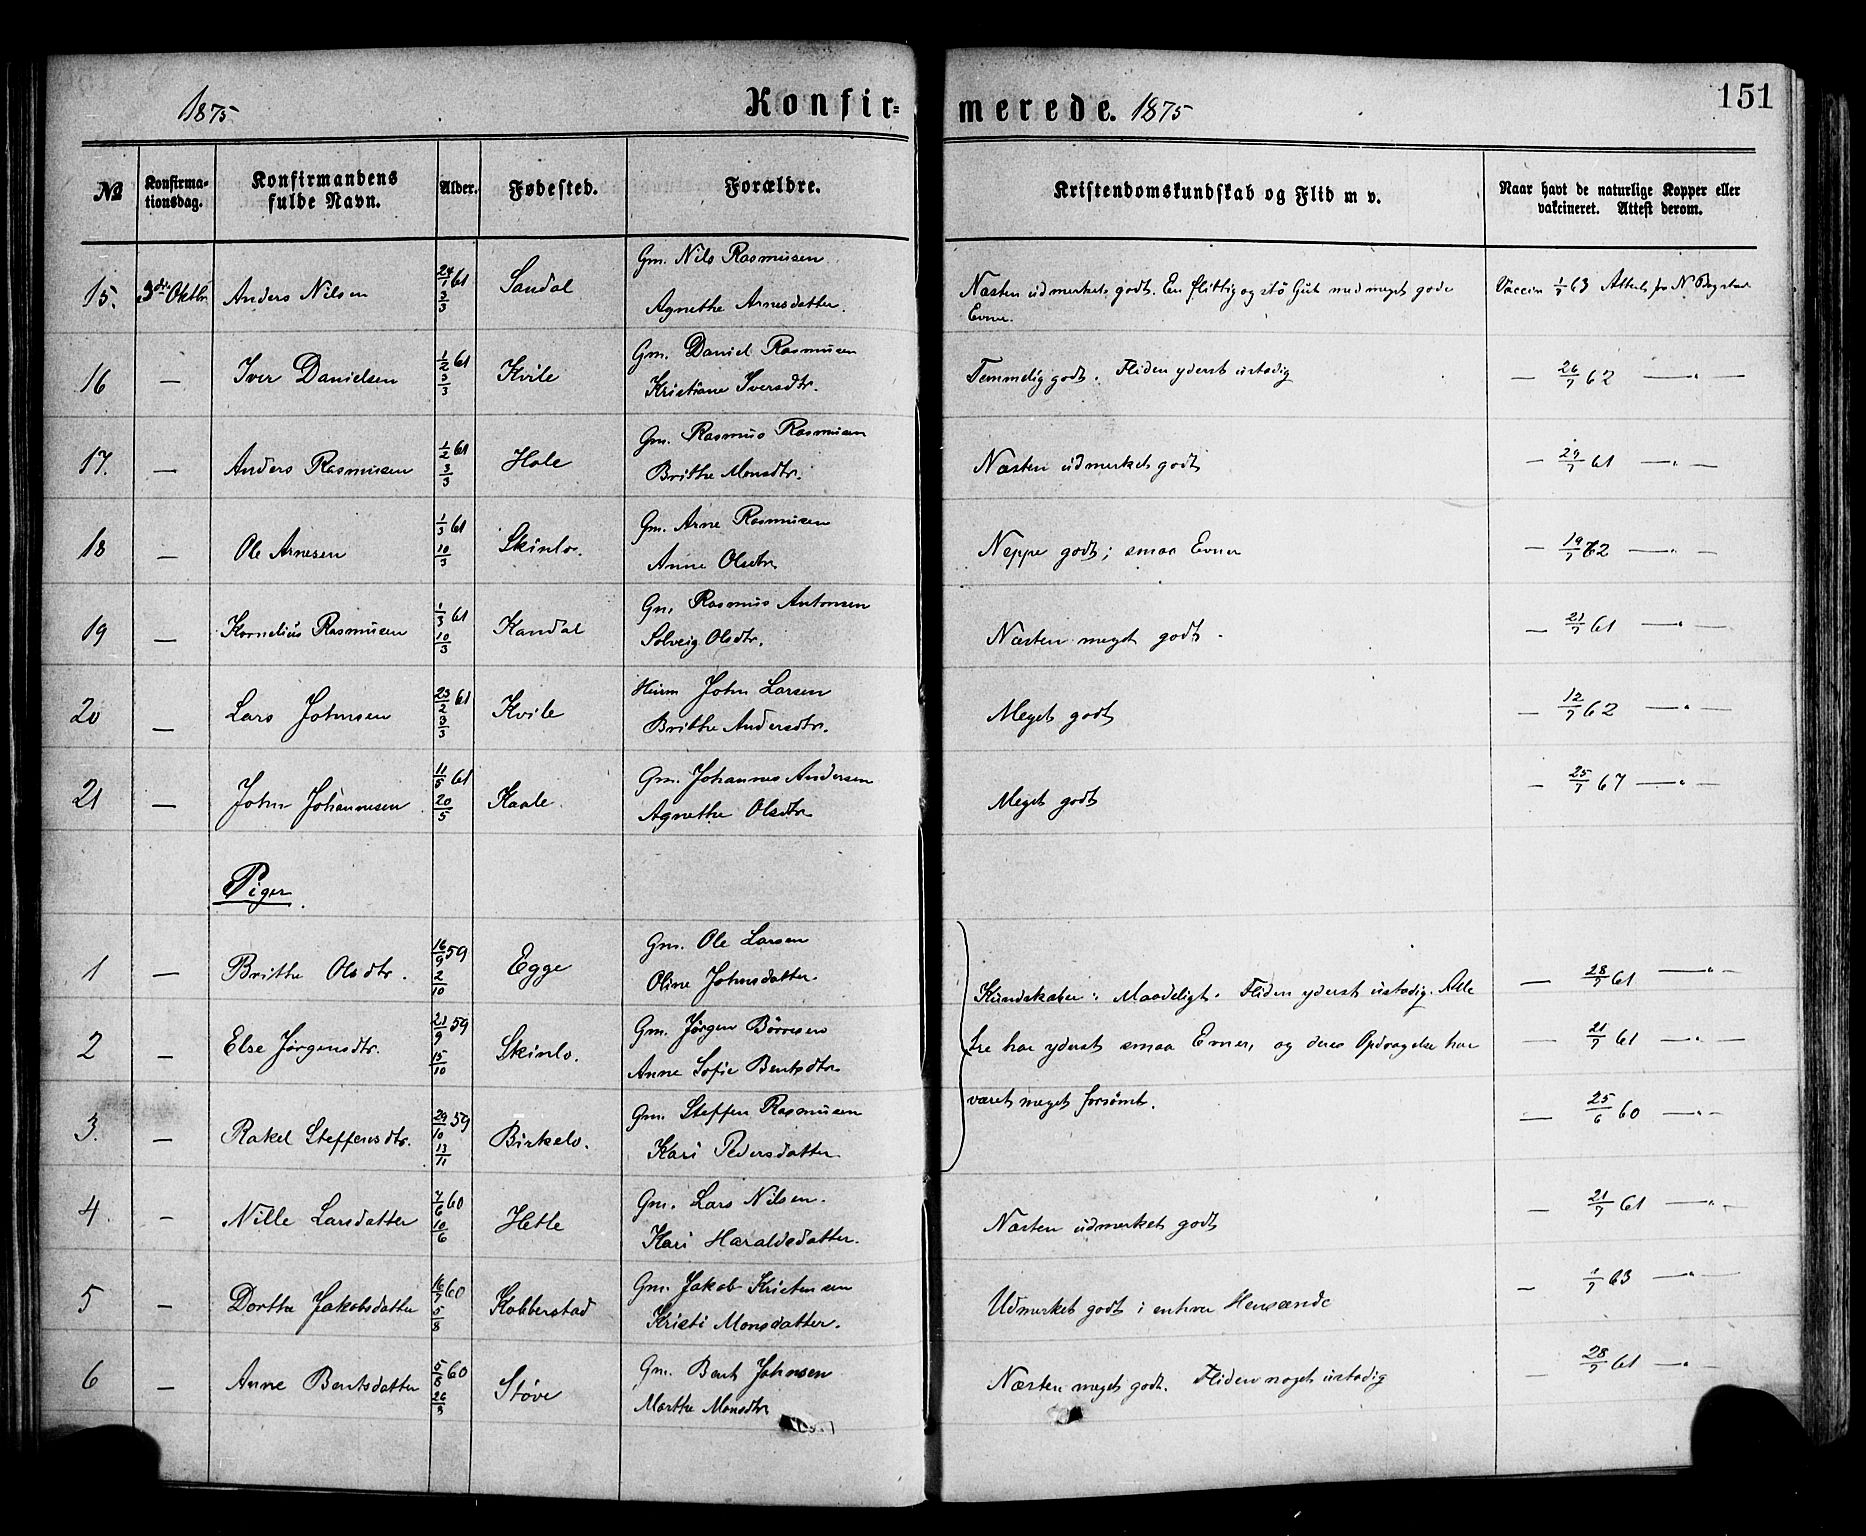 1875 Konfir= merede. 1875 151
No Konfirma-tionsdag. Konfirmandens fulde Navn. Alder. Fødested. Forældre. Kristendomskundskab og Flid m v. Naar havt de naturlige Kopper eller vakcineret. Attest derom.
15. 3die Oktbr. Anders Nilsen 24/1 61 3/3 Sandal Gm. Nils Rasmusen
Agnethe Arnesdatter. Næsten udmerkets godt. En flittig og stø Gut med meget gode Vaccin 1/7 63 Attest fr N.
Evner.
16 — Iver Danielsen 1/2 61 3/3 Kvile Gm. Daniel Rasmusen
Kristiane Iversdtr. Temmelig godt. Fliden yderst ustadig — 26/7 62 —"—
17. — Anders Rasmusen 1/2 61 3/3 Hole Gm. Rasmus Rasmusen
Brithe Monsdtr. Næsten udmerket godt — 29/7 61 —"—
18 — Ole Arnesen 1/3 61 10/3 Skinlo. Gm. Arne Rasmusen
Anne Olsdtr. Neppe godt; smaa Evner — 19/7 62 —"—
19 — Kornelius Rasmusen 1/3 61 10/3 Kandal Gm. Rasmus Antonsen
Solveig Olsdtr. Næsten meget godt. — 21/7 61 —"—
20 — Lars Johnsen 23/2 61 3/3 Kvile Huusm John Larsen
Brithe Andersdtr. Meget godt — 12/7 62 —"—
21 — John Johannesen 11/5 61 20/5 Kaale. Gm. Johannes Andersen
Agnethe Olsdtr. Meget godt — 25/7 67 —"—
Piger.
1 — Brithe Olsdtr. 16/9 59 2/10 Egge Gm. Ole Larsen
Oline Johnsdatter. Kundskaber: Maadeligt. Fliden yderst ustadig. Alle — 28/7 61 —"—
2 — Else Jørgensdtr. 21/9 59 15/10 Skinlo. Gm. Jørgen Børresen
Anne Sofie Bentsdtr. tre har yderst smaa Evner, og deres Opdragelse har — 21/7 61 —"—
3. — Rakel Steffensdtr. 29/10 59 13/11 Birkelo. Gm. Steffen Rasmusen
Kari Pedersdatter. været meget forsømt. — 25/6 60 —"—
4. — Nille Larsdatter 7/6 60 10/6 Hetle Gm. Lars Nilsen.
Kari Haraldsdatter. Næsten udmerket godt — 21/7 61 —"—
5 — Dorthe Jakobsdatter 16/7 60 5/8 Kobberstad Gm. Jakob Kristensen
Kristi Monsdatter. Udmerket godt i enhver Henseende — 1/7 63 —"—
6 — Anne Bentsdatter 5/8 60 26/8 Støve Gm. Bent Johnsen
Marthe Monsdtr. Næsten meget godt. Fliden noget ustadig — 28/7 61 —"—